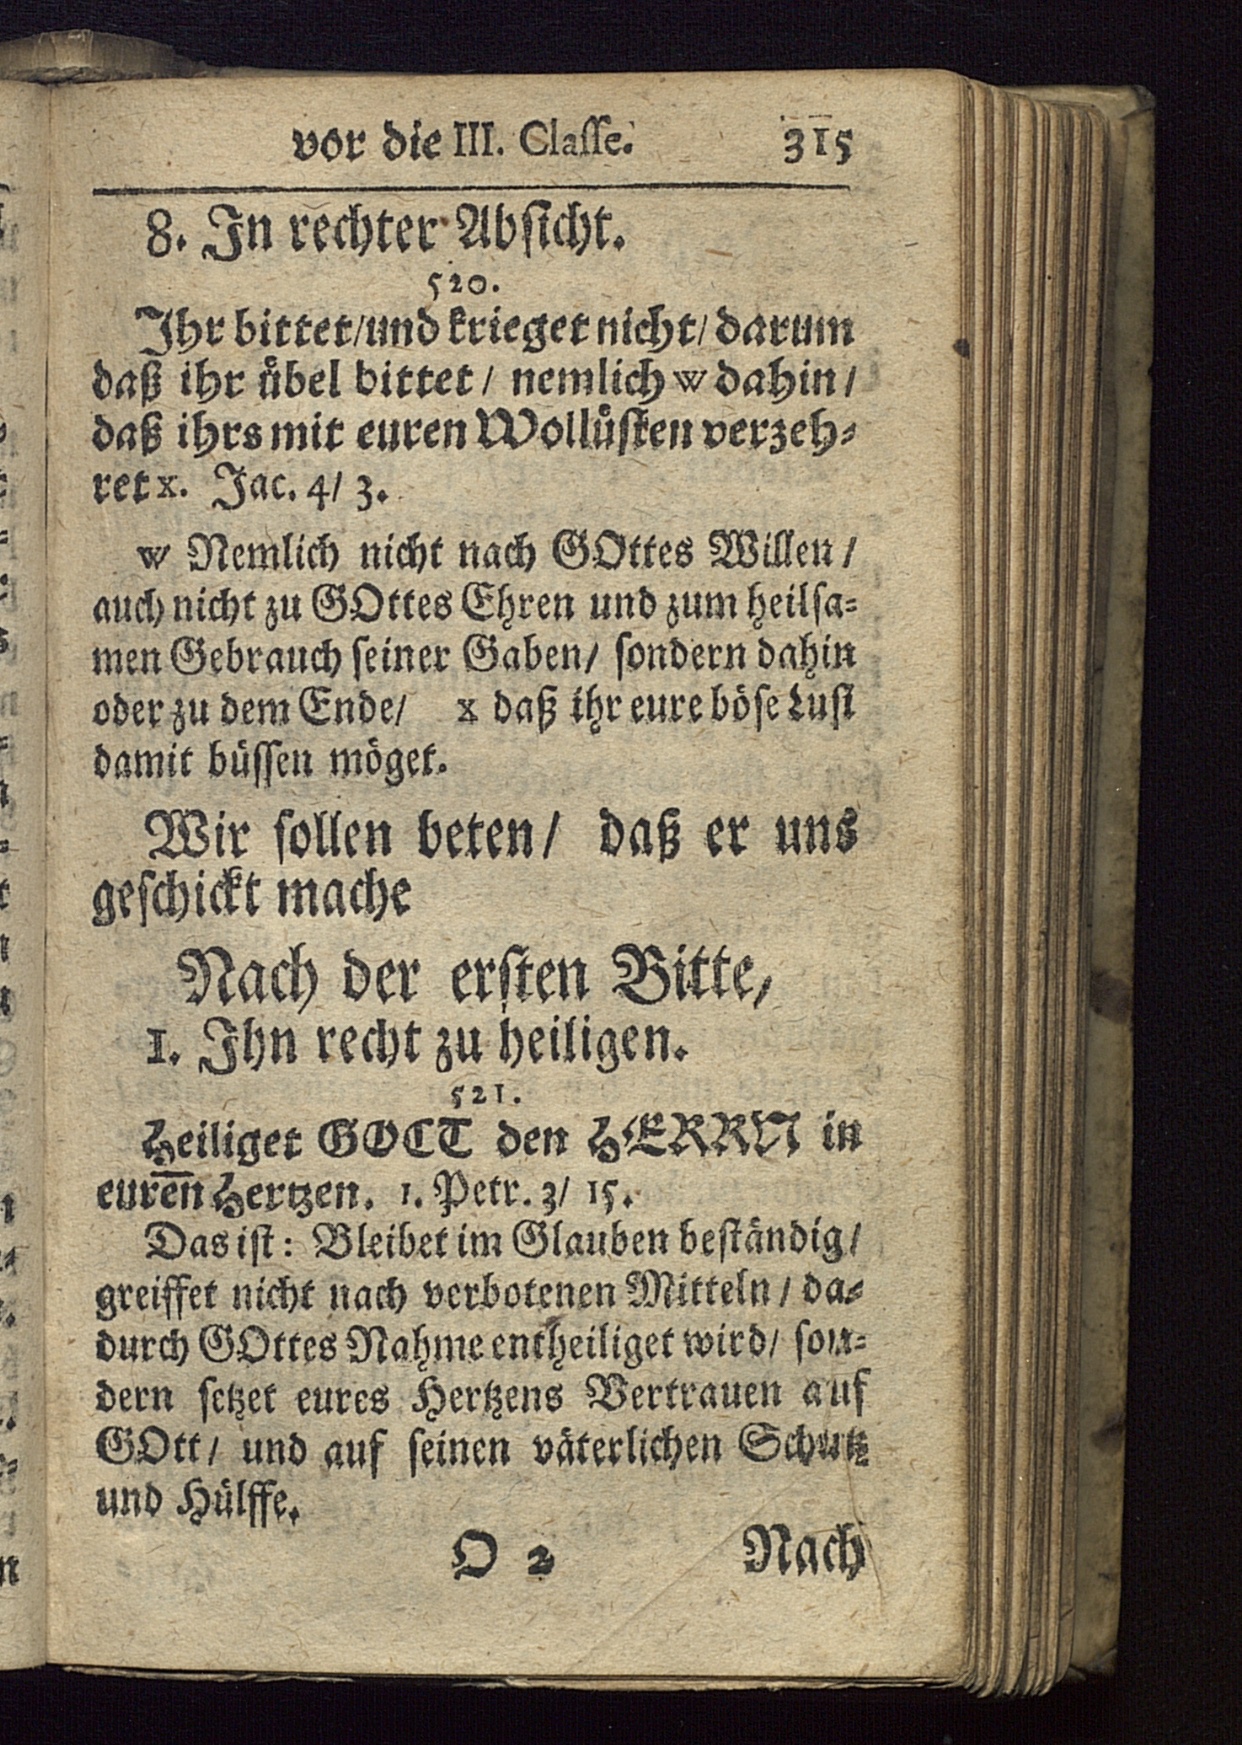 vor die III. Classe. 315
8. In rechter Absicht.
520.
Ihr bittet/und krieget nicht/ darum
daß ihr uͤbel bittet/ nemlich w dahin/
daß ihrs mit euren Wolluͤsten verzeh-
ret x. Jac. 4/ 3.
w Nemlich nicht nach GOttes Willen/
auch nicht zu GOttes Ehren und zum heilsa-
men Gebrauch seiner Gaben/ sondern dahin
oder zu dem Ende/ x daß ihr eure böse Lust
damit büssen möget.
Wir sollen beten/ daß er uns
geschickt mache
Nach der ersten Bitte,
1. Ihn recht zu heiligen.
521.
Heiliget GOTT den HERRN in
eureñ Hertzen. 1. Petr. 3/ 15.
Das ist: Bleibet im Glauben beständig/
greiffet nicht nach verbotenen Mitteln/ da-
durch GOttes Nahme entheiliget wird/ son-
dern setzet eures Hertzens Vertrauen auf
GOtt/ und auf seinen väterlichen Schutz
und Hülffe.
O 2 Nach